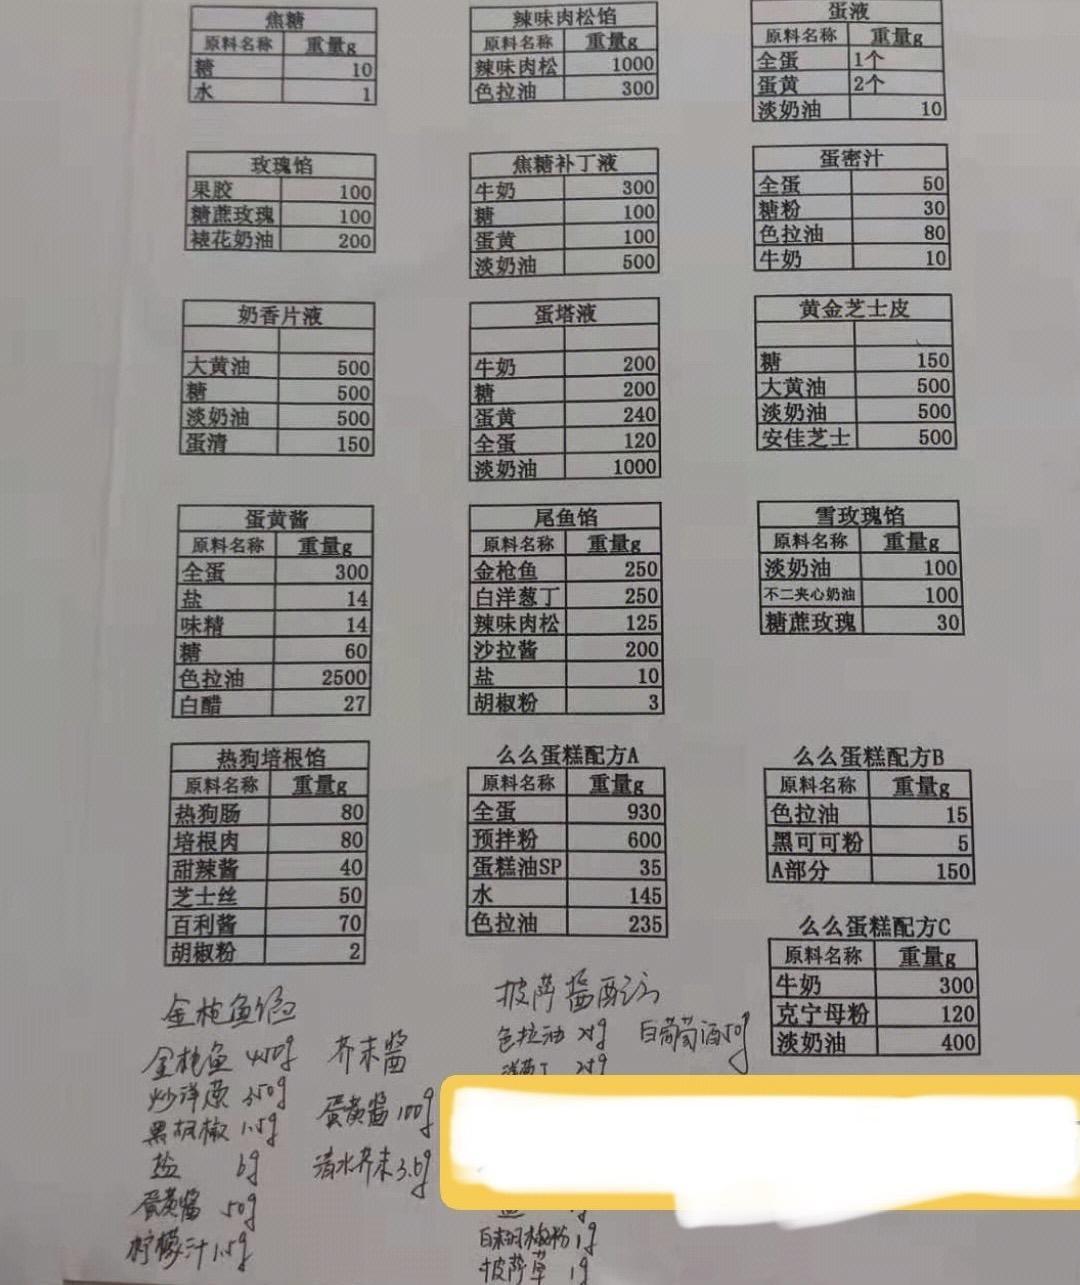 焦糖
原料名称 重量g
糖 10
水 1
辣味肉松馅
原料名称 重量g
辣味肉松 1000
色拉油 300
蛋液
原料名称 重量g
全蛋 1个
蛋黄 2个
淡奶油 10
玫瑰馅
果胶 100
糖蔗玫瑰 100
裱花奶油 200
焦糖补丁液
牛奶 300
糖 100
蛋黄 100
淡奶油 500
蛋密汁
全蛋 50
糖粉 30
色拉油 80
牛奶 10
奶香片液
大黄油 500
糖 500
淡奶油 500
蛋清 150
蛋塔液
牛奶 200
糖 200
蛋黄 240
全蛋 120
淡奶油 1000
黄金芝士皮
糖 150
大黄油 500
淡奶油 500
安佳芝士 500
蛋黄酱
原料名称 重量g
全蛋 300
盐 14
味精 14
糖 60
色拉油 2500
白醋 27
尾鱼馅
原料名称 重量g
金枪鱼 250
白洋葱丁 250
辣味肉松 125
沙拉酱 200
盐 10
胡椒粉 3
雪玫瑰馅
原料名称 重量g
淡奶油 100
不二夹心奶油 100
糖蔗玫瑰 30
热狗培根馅
原料名称 重量g
热狗肠 80
培根肉 80
甜辣酱 40
芝士丝 50
百利酱 70
胡椒粉 2
么么蛋糕配方A
原料名称 重量g
全蛋 930
预拌粉 600
蛋糕油SP 35
水 145
色拉油 235
么么蛋糕配方B
原料名称 重量g
色拉油 15
黑可可粉 5
A部分 150
么么蛋糕配方C
原料名称 重量g
牛奶 300
克宁母粉 120
淡奶油 400
金枪鱼馅
金枪鱼 450g
炒洋葱 350g
黑胡椒 1.5g
盐 6g
蛋黄酱 50g
柠檬汁 1.5g
芥末酱
蛋黄酱 100g
清水芥末 3.6g
披萨酱配方
色拉油 25g 白葡萄酒 50g
洋葱丁 25g
白胡椒粉 1g
披萨草 1g